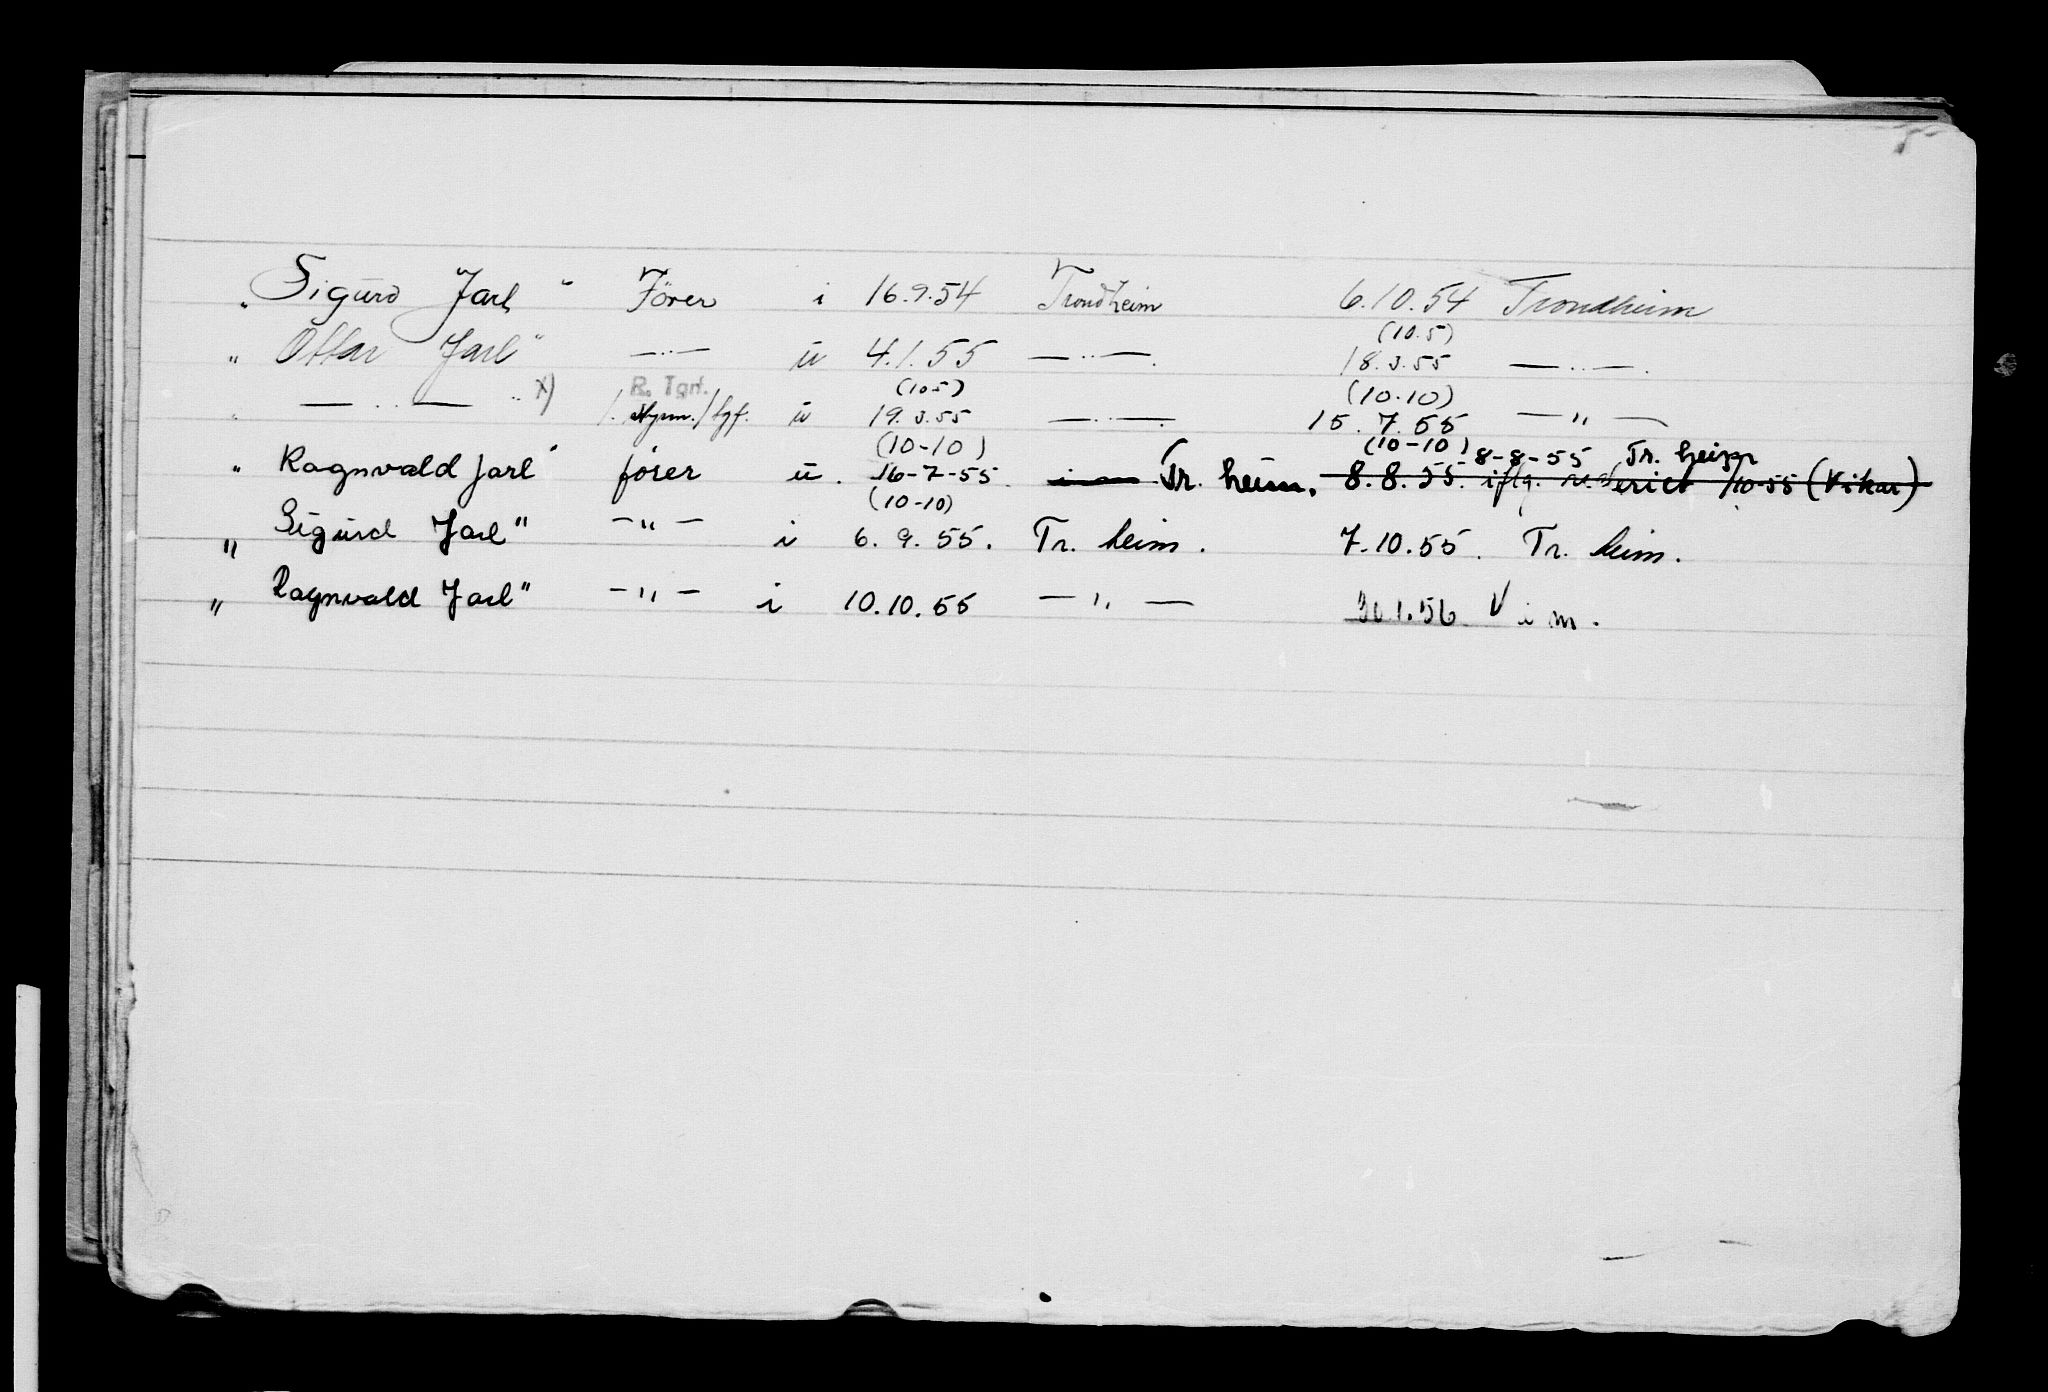 „ Sigurd Jarl " Förer i 16.9.54 Trondheim 6.10.54 Trondheim
(10.5)
„ Ottar Jarl " —..— ü 4.1.55 —..—. 18.3.55 —..—.
R. Tgrf. (10.5) (10.10)
„ —..— " x) 1. styrm./tgf. ü 19.3.55 —..— 15.7.55 — " —
(10-10) (10-10) 8-8-55 Tr. heim
„ Ragnvald Jarl " förer ü. 16-7-55. Tr. heim. 8.8.55. iflg. rederiet /10-55 (Vikar)
(10-10)
„ Sigurd Jarl " — " — i 6.9.55. Tr. heim. 7.10.55. Tr. heim.
„ Ragnvald Jarl " — " — i 10.10.55 — " — 30.1.56 V i m.